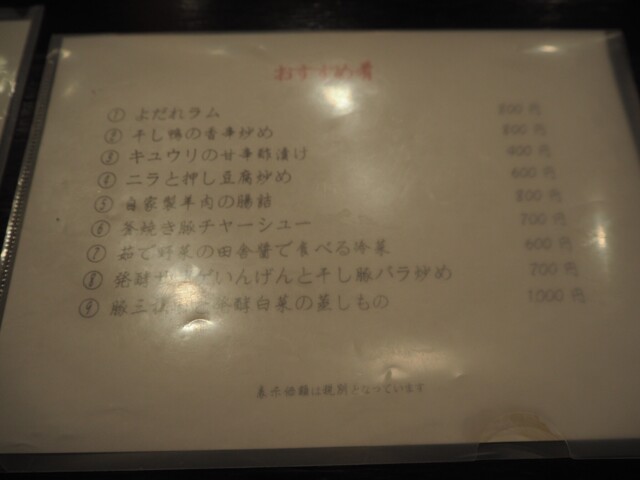 おすすめ肴
① よだれラム 800円
② 干し鴨の香辛炒め 800円
③ キユウリの甘辛酢漬け 400円
④ ニラと押し豆腐炒め 600円
⑤ 自家製羊肉の腸詰 800円
⑥ 釜焼き豚チャーシュー 700円
⑦ 茹で野菜の田舎醤で食べる冷菜 600円
⑧ 発酵 いんげんと干し豚バラ炒め 700円
⑨ 豚三 発酵白菜の蒸しもの 1000円
表示価額は税別となっています